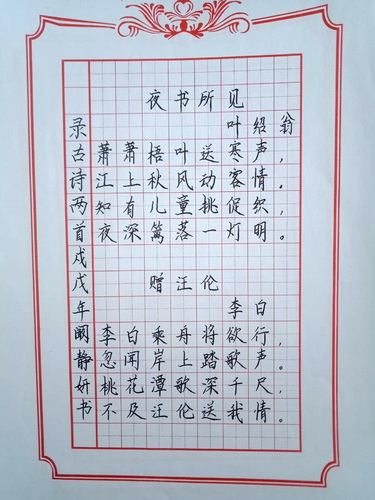 夜书所见
叶绍翁
萧萧梧叶送寒声，
江上秋风动客情。
知有儿童挑促织，
夜深篱落一灯明。
赠汪伦
李白
李白乘舟将欲行，
忽闻岸上踏歌声。
桃花潭歌深千尺，
不及汪伦送我情。
录古诗两首戍戊年阚静妍书